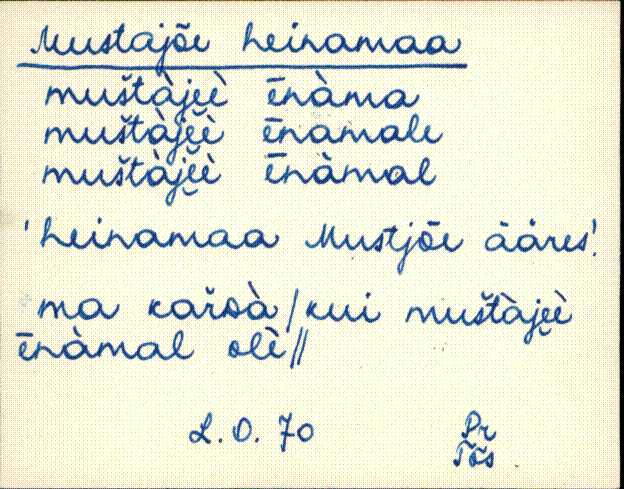 Mustajõe heinamaa
muštàjẹè ēnàma
muštàjẹ̮è ēnamale
muštàjẹ̮è ēnàmal
'heinamaa Mustjõe ääres'.
ma karšsà / kui muštàjẹ̮è
ēnàmal olè //
L. O. 70
Pr
Tõs